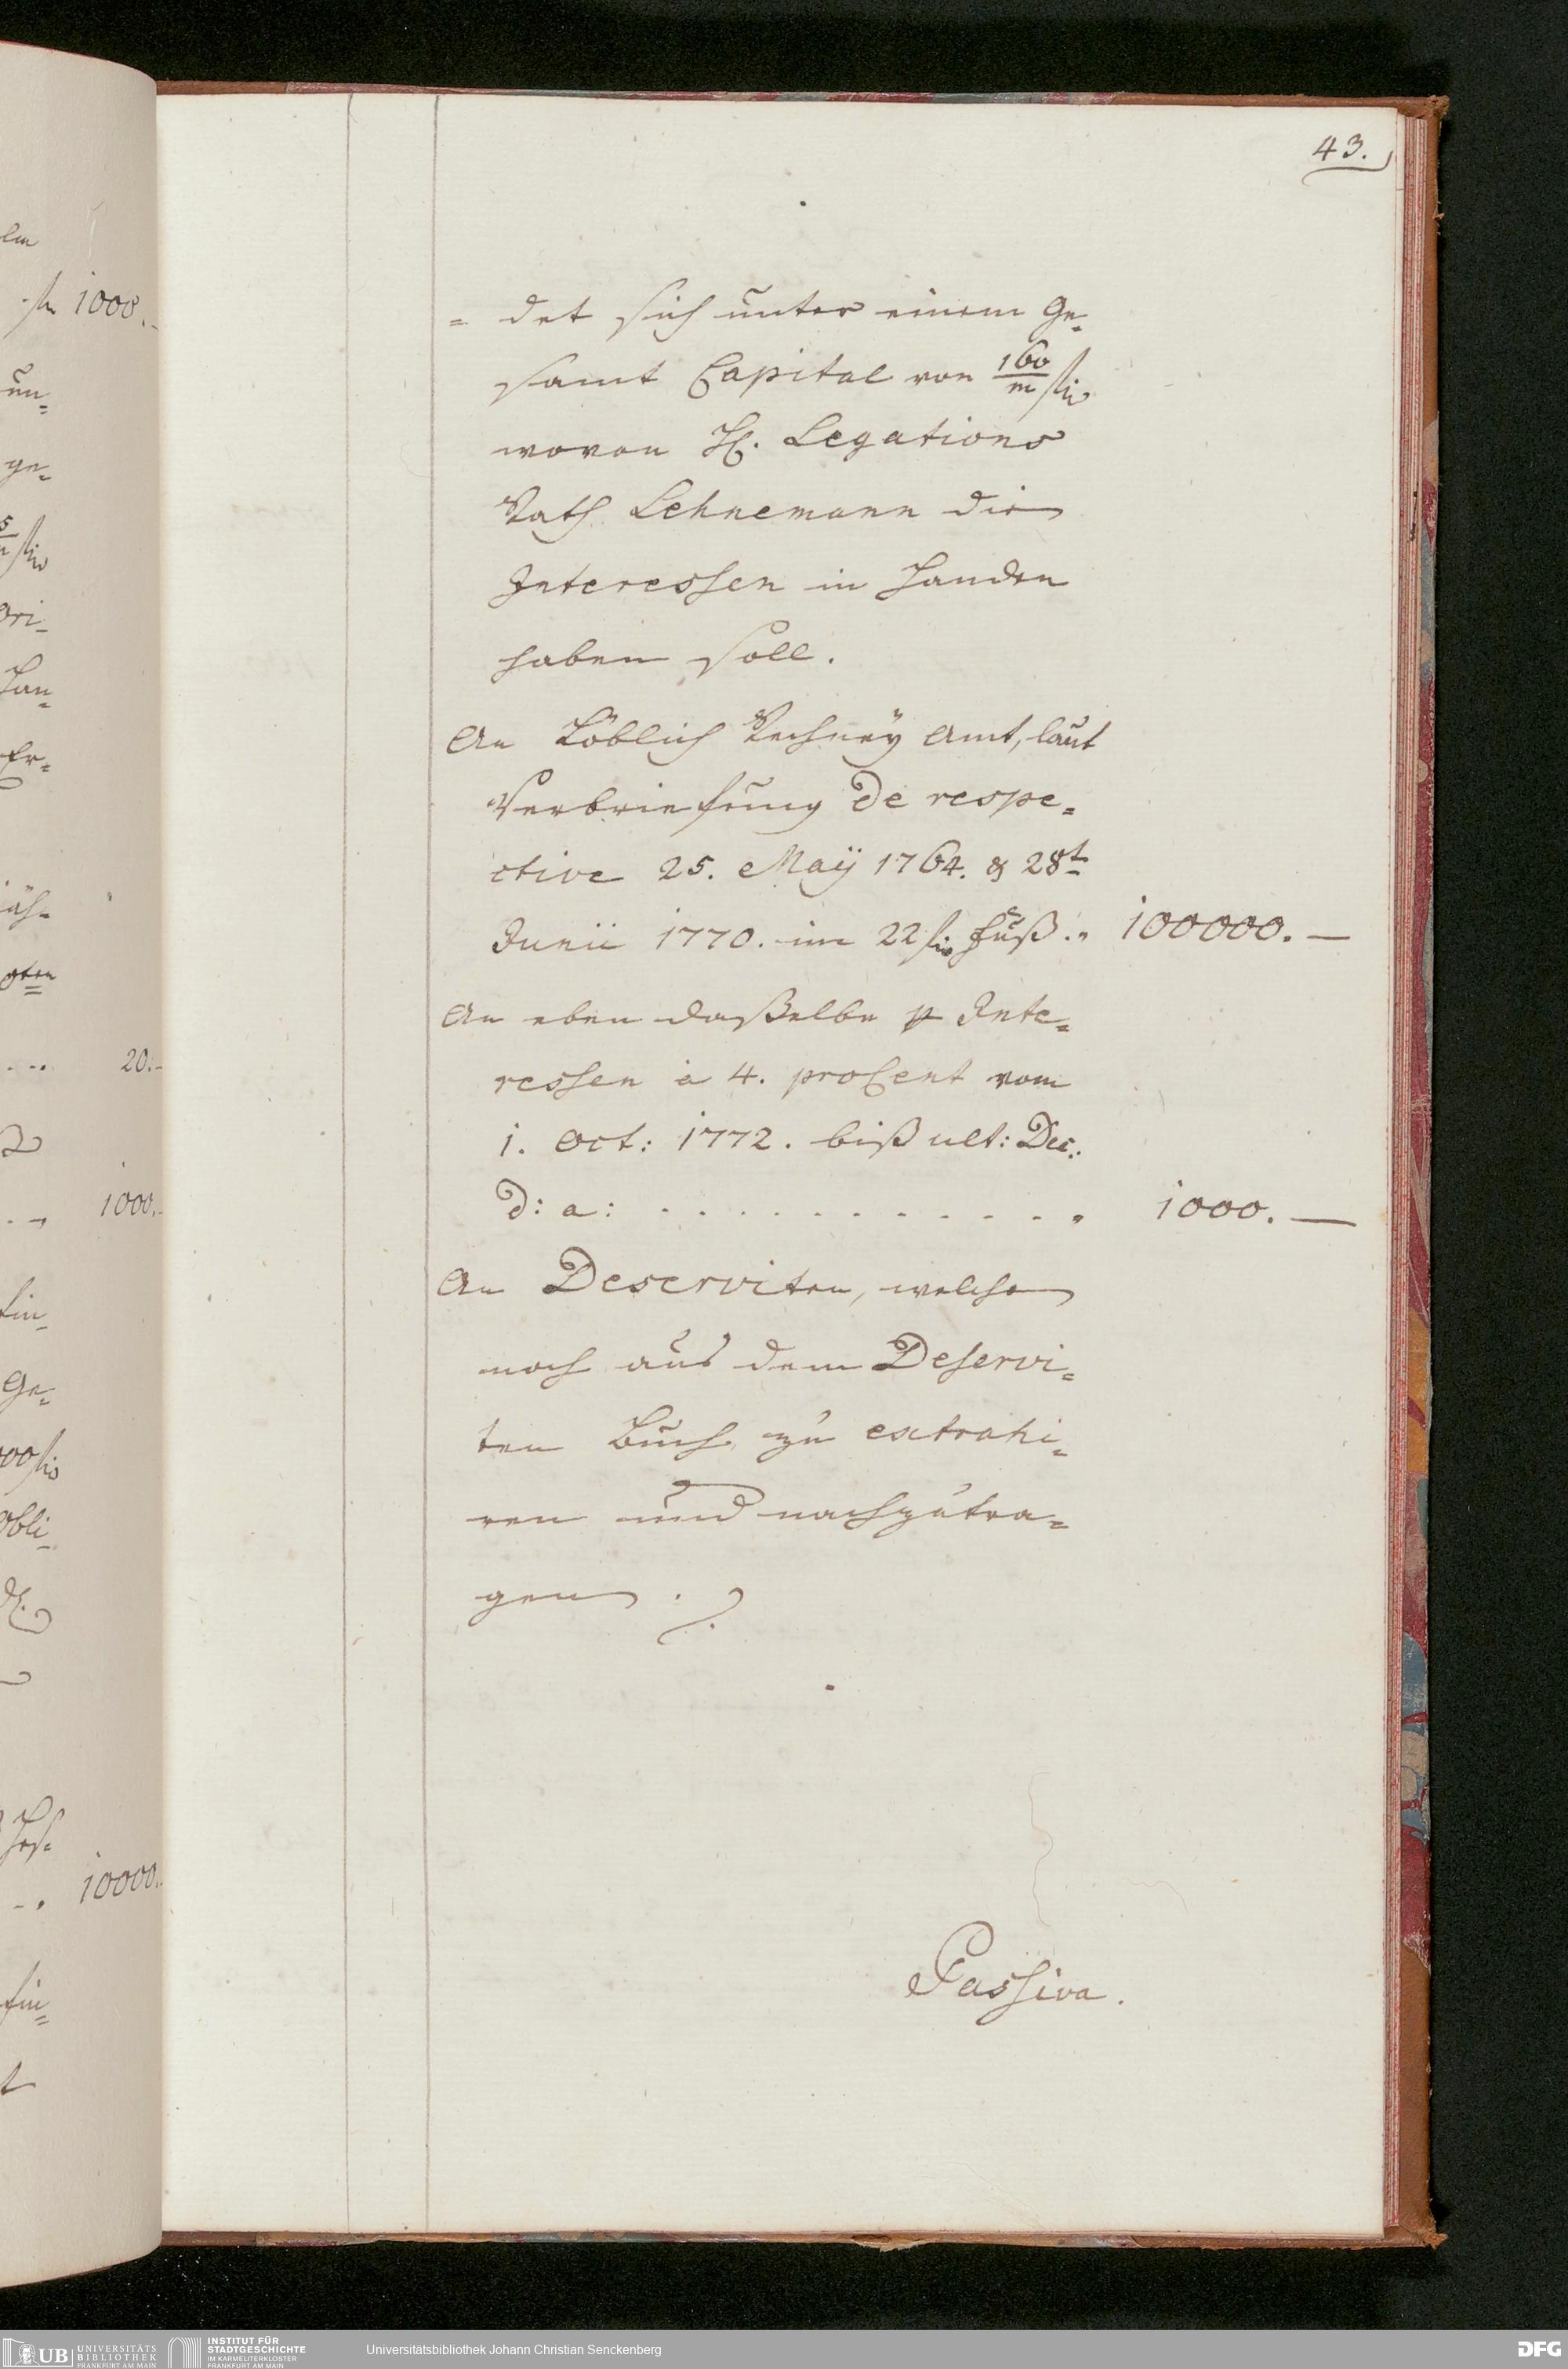 43.
= det sich unter einem Ge-
samt Capital von 160/m fl.
wovon H. Legations
Rath Lehnemann die
Interessen in Handen
haben soll.
An Löblich Rechney Amt, laut
Verbriefung de respe=
ctive 25. Maÿ 1764. & 28t
Junii 1770. im 22 fl. Fuß. 100000. —
An eben daßelbe p Inte=
ressen à 4. proCent vom
1. Oct: 1772. biß ult: Dec:
d: a: . . . . . . . . . . . 1000. —
An Deserviten, welche
noch aus dem Deservi=
ten Buch zu extrahi=
ren und nachzutra=
gen.
Passiva.
lm
fl 1000.
un=
ge=
ori=
Han=
Er=
20.-
1000.
Ge=
Obli=
10000.
UB UNIVERSITÄTS BIBLIOTHEK FRANKFURT AM MAIN
INSTITUT FÜR STADTGESCHICHTE IM KARMELITERKLOSTER FRANKFURT AM MAIN
Universitätsbibliothek Johann Christian Senckenberg
DFG